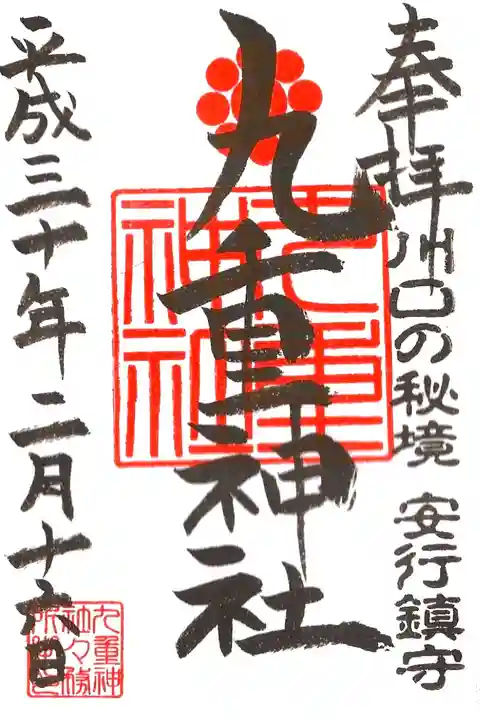 奉拝 川口の秘境 安行鎮守
九重神社
九重神社
平成三十年二月十六日
九重神
社々務